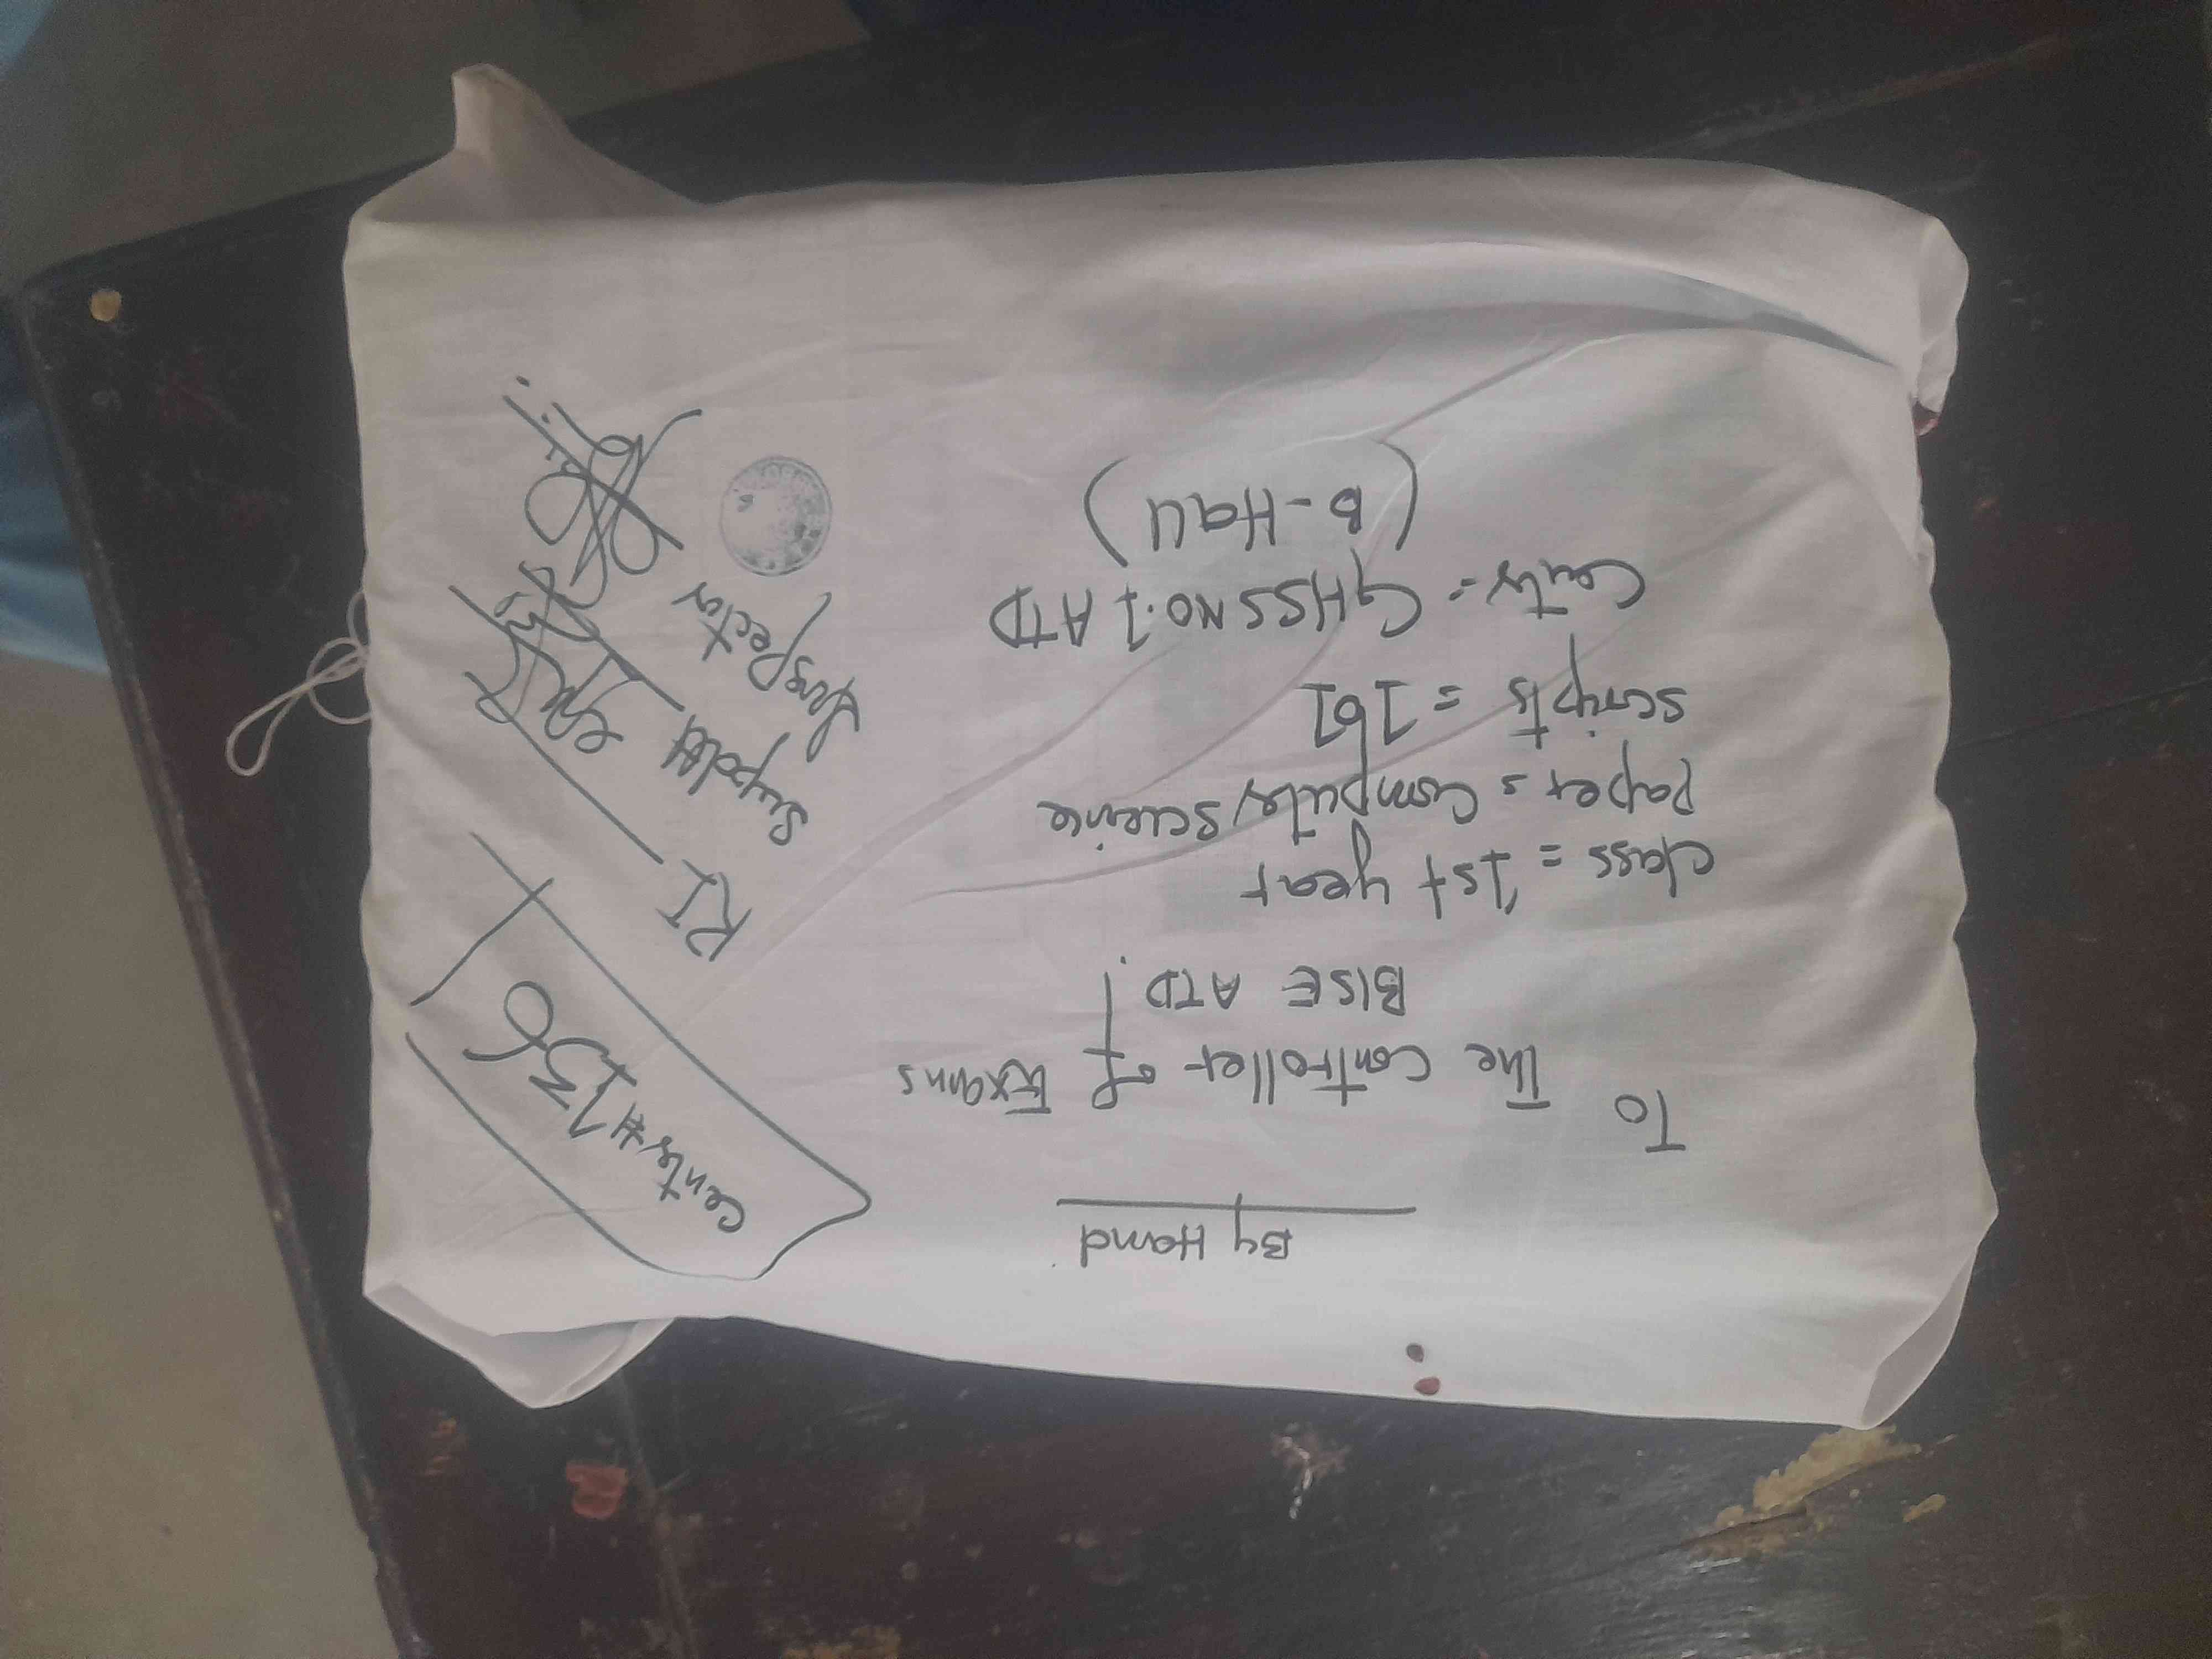 By Hand
To
The Controller of Exams
BISE ATD!
Class = 1st year
Paper = Computer Science
Scripts = 161
Center = GHSS NO.1 ATD
(B-Hall)
Center # 136
RI
Supdtt
Inspector